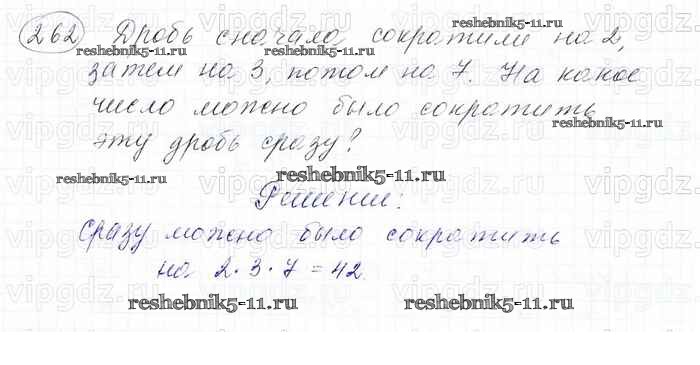 262 Дробь сначала сократили на 2,
reshebnik5-11.ru reshebnik5-11.ru reshebnik5-11.ru
затем на 3, потом на 7. На какое
число можно было сократить
reshebnik5-11.ru
эту дробь сразу?
reshebnik5-11.ru reshebnik5-11.ru
Решение:
сразу можно было сократить
на 2·3·7=42.
reshebnik5-11.ru reshebnik5-11.ru